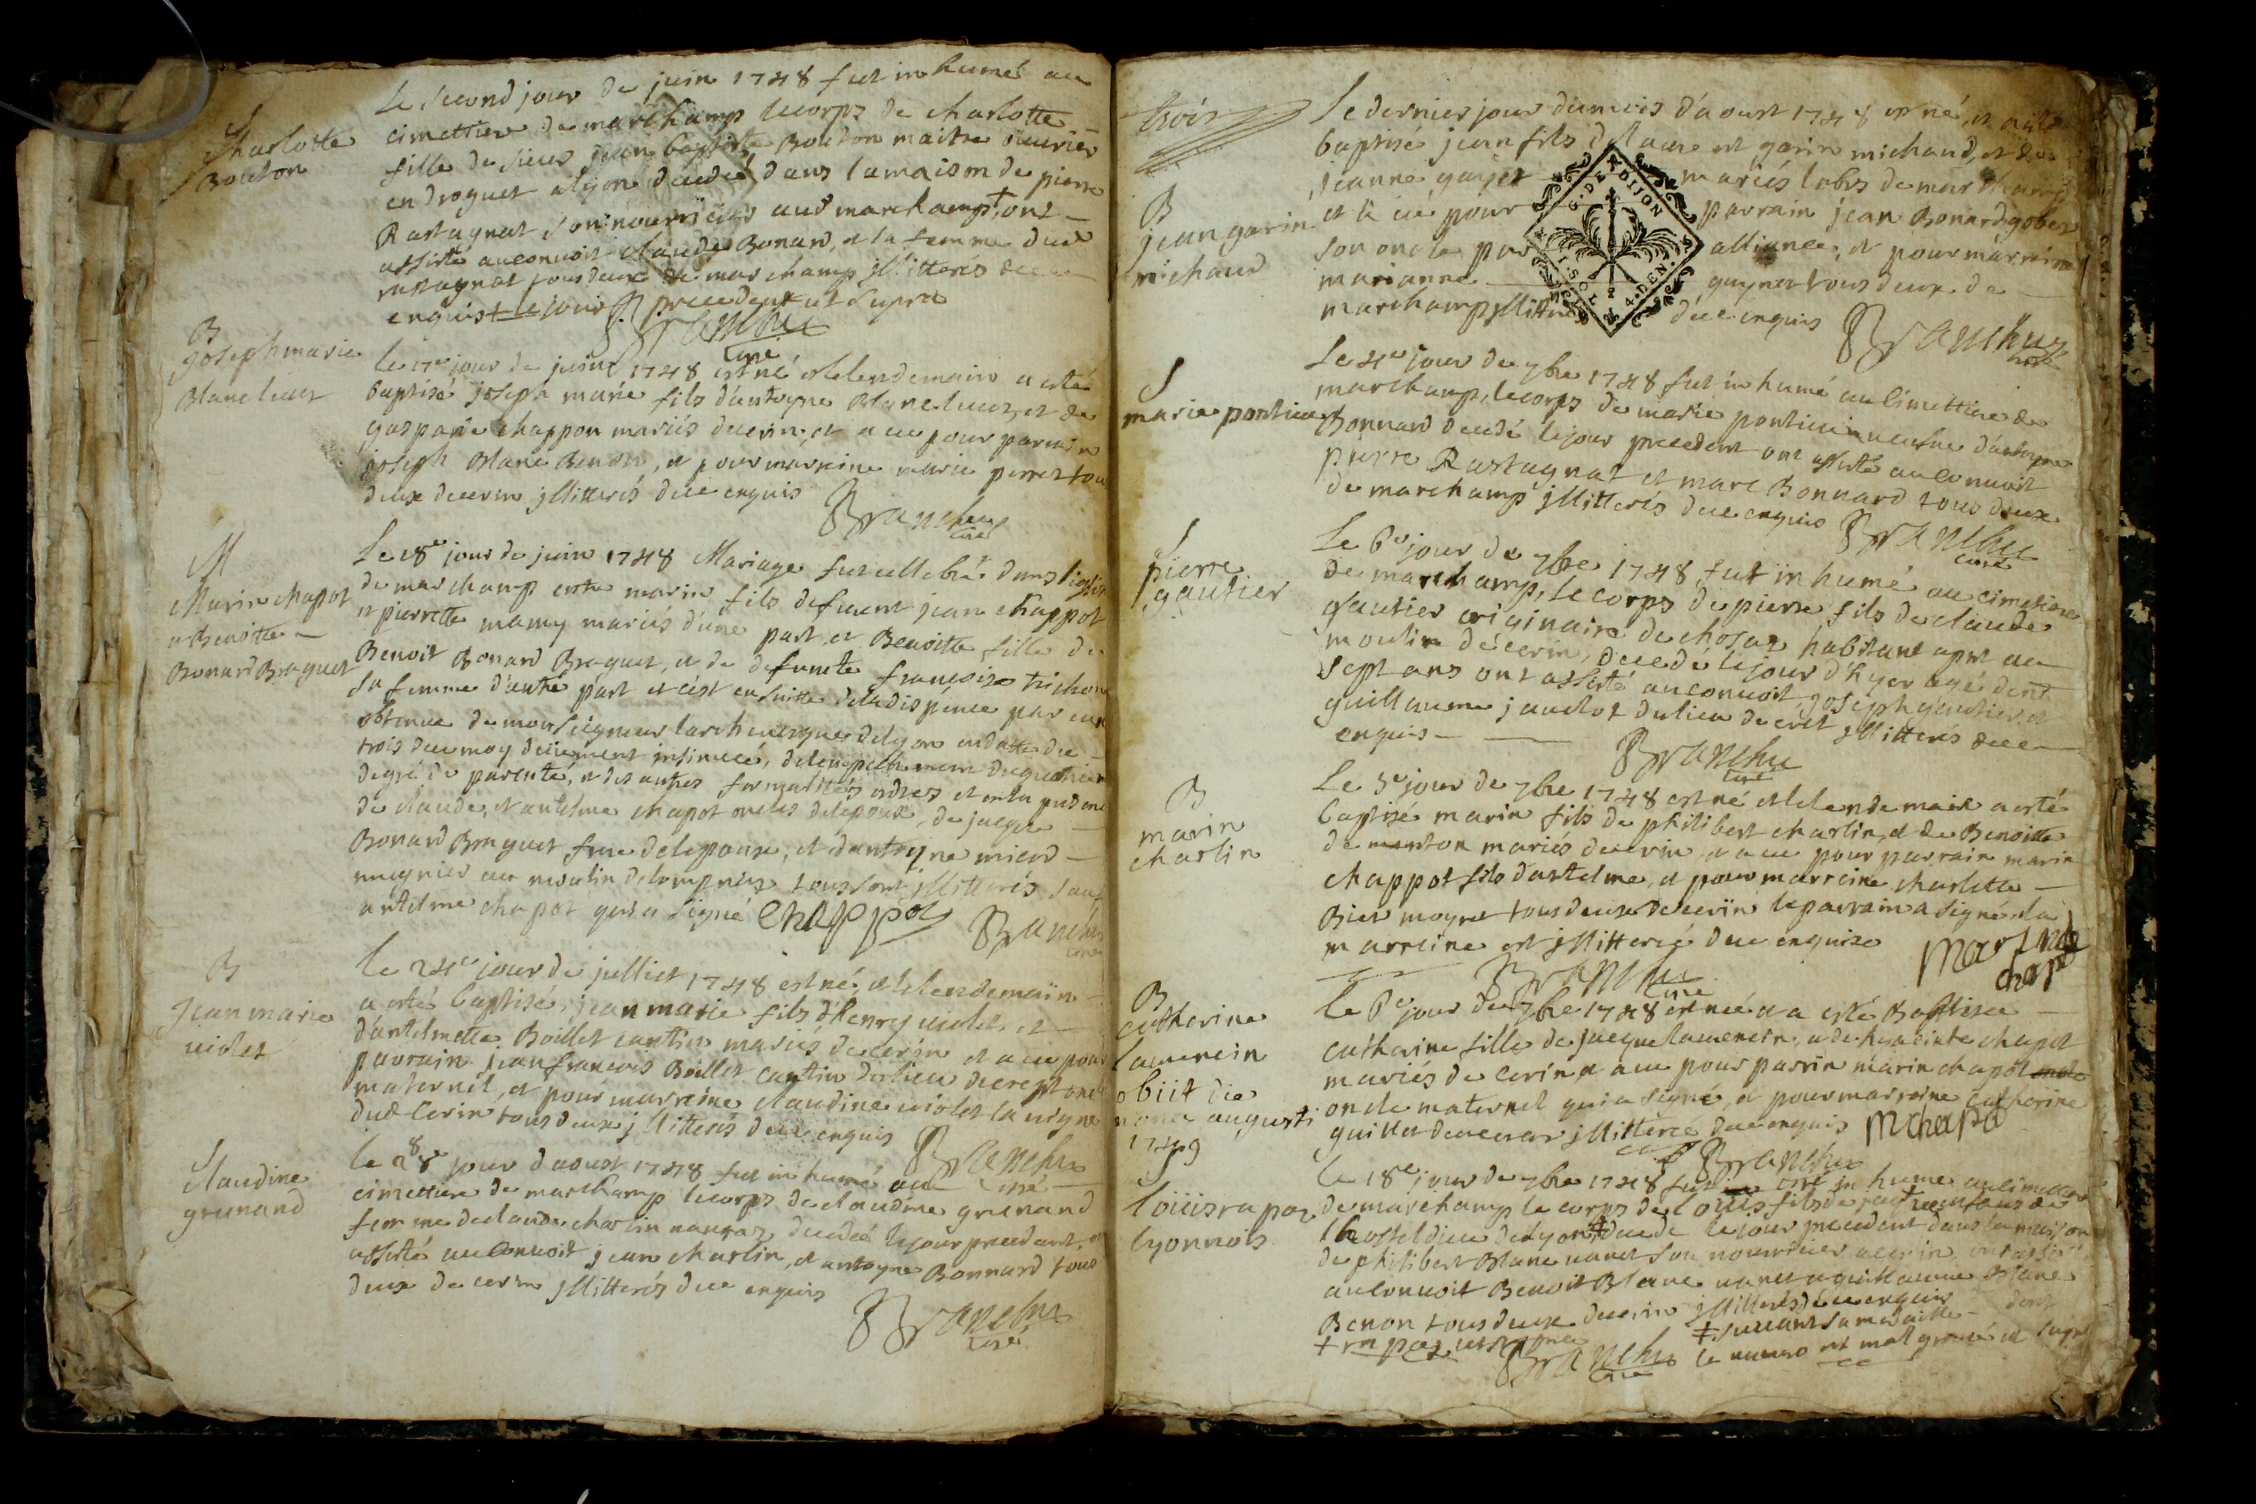 S
Charlotte
Bouton
Le second jour de juin 1748 fut inhumé au
cimettiere de marchamp le corps de charlotte
fille de sieur jean baptiste Bouton maitre ouvrier
en droguet a lyon decedée dans la maison de pierre
Rastagnat son nourricier aud marchamp + ont
assisté au convoit claude Bonard, et la femme dud
rastagnat tous deux de marchamp jllitterés de ce
enquis + le jour precedent ut supra
Branchu
curé
B
joseph marie
Blanc
le jour de juin 1748 est né et le lendemain a esté
baptisé joseph marie fils d'antoyne Blanc et de
gasparde chappon mariés de cerin, et a eu pour parrain
joseph Blanc Benon, et pour marreine marie perret tous
deux de cerin jllitterés de ce enquis
Branchu
curé
M
Marin chapot
et Benoitte
Bonard Braquet
Le 18e jour de juin 1748 Mariage fut cellebré dans l'église
de marchamp entre marin fils defunt jean chappot
et pierrette mamy mariés d'une part et Benoitte fille de
Benoit Bonard Braquet, et de defuncte françoise
sa femme d'autre part et c'est ensuitte de la dispence par eux
obtenue de monseigneur l'archevesque de lyon en datte du
trois du moy deüement insinuée, de l'empechement du quatrieme
degré de parenté, et des autres formallités
de claude, et antelme chapot oncles de l'epoux, de jacque
Bonard Braquet frere de l'epouse, et d'antoyne
mugnier au moulin de tous sont jllitterés sauf
antelme chapot qui a signé Chappot
Branchu
curé
B
Jean marie
violet
le 24e jour de julliet 1748 est né, et le lendemain
a esté baptisé jean marie fils d'henry violet, et
d'antelmette Boillet cantin mariés de cerin et a eu pour
parrain jean françois Boillet cantin du lieu de crept oncle
maternel, et pour marreine claudine violet la vigne
dud Cerin tous deux jllitterés de ce enquis
Branchu
curé
S
Claudine
grunand
le 28e jour d'aoust 1748 fut inhumé au
cimettiere de marchamp le corps de claudine grunand
femme de claude charlin decedée le jour precedent, ont
assisté au convoit jean charlin, et antoyne Bonnard tous
deux de cerin jllitterés de ce enquis
Branchu
curé
trois
B
jean garin
michaud
le dernier jour du mois d'aoust 1748 est né, et a esté
baptisé jean fils de garin michaud, et de
jeanne mariés de marchamp
et a eu pour parrain jean Bonard gobet
son oncle par alliance, et pour marreine
marianne tous deux de
marchamp jllitterés de ce enquis
G. DE DIJON
1. SOL 4. DEN.
Branchu
curé
S
marie
Le 4e jour de 7bre 1748 fut inhumé au Cimettiere de
marchamp, le corps de marie veufve d'antoyne
Bonnard decedé le jour precedent ont assisté au convoit
pierre Rastagnat et marc Bonnard tous deux
de marchamp jllitterés de ce enquis
Branchu
curé
S
pierre
gautier
Le 6e jour de 7bre 1748 fut inhumé au cimetiere
de marchamp, le corps de pierre fils de claude
gautier originaire de habitant au
moulin de cerin, decedé le jour d'hyer agé
sept ans ont assisté au convoit joseph gautier et
guillaume du lieu de crept jllitterés de ce
enquis
Branchu
curé
B
marin
charlin
Le 5e jour de 7bre 1748 est né et le lendemain a esté
baptisé marin fils de philibert charlin, et de Benoitte
demonton mariés de cerin, et a eu pour parrain marin
chappot fils d'antelme, et pour marreine charlotte
moyret tous deux de cerin le parrain a signé, la
marreine est jllitterée de ce enquise
Branchu
curé
Marin
chapot
B
catherine
laurencin
obiit die
nona augusti
1749
le 6e jour de 7bre 1748 est née et a esté Baptisée
catherine fille de jacque laurencin, et de hyacinte chapot
mariés de cerin et a eu pour parrin marin chapot
oncle maternel qui a signé, et pour marreine catherine
guillot de jllitterée de ce enquis
M chapot
Branchu
curé
S
loüis rapoz
lyonnois
le 18e jour de 7bre 1748 fut inhumé au cimettiere
de marchamp le corps de loüis fils de
l'hostel dieu de lyon ‡ decedé le jour precedent dans la maison
de philibert Blanc nanet son nourricier a cerin, ont assisté
au convoit Benoit Blanc nanet et guillaume Blanc
Benon tous deux de cerin jllitterés de ce enquis
‡ suivant sa medaille dont
le numero est mal gravé ut supra
Branchu
curé